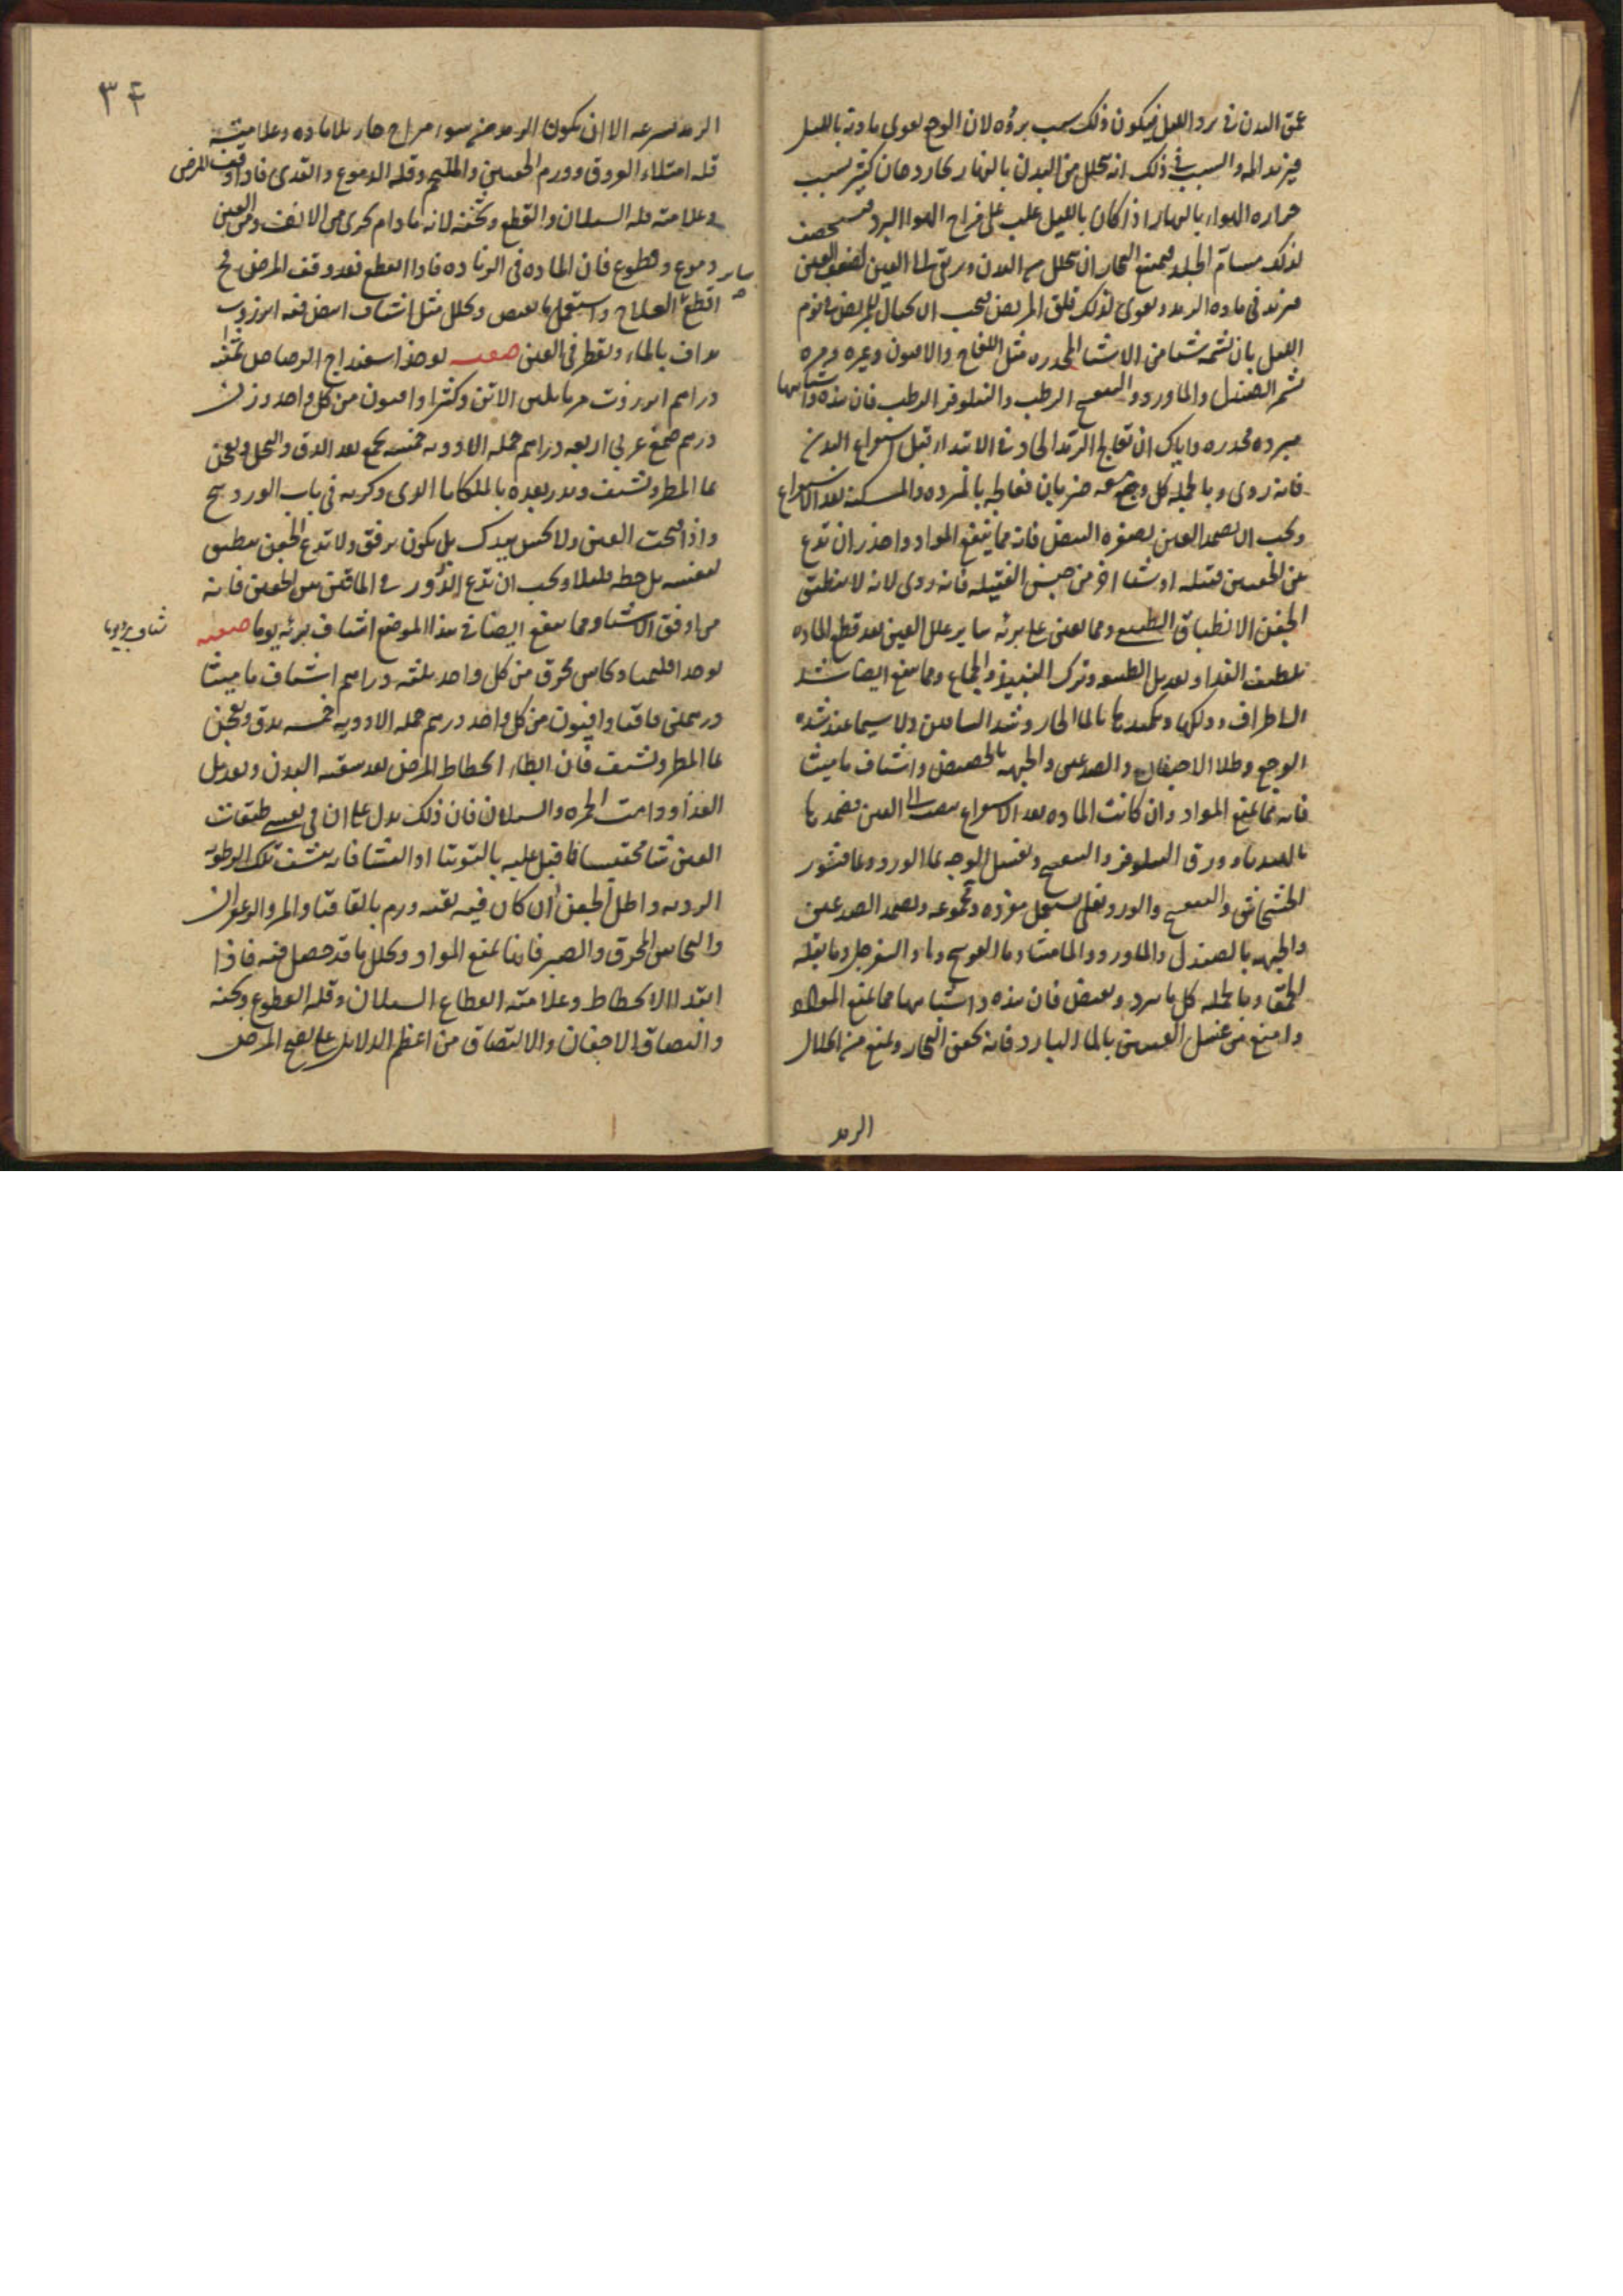 عمق البدن فى برد الليل فيكون ذلك سبب برؤه لان الوجع يقوى مادته بالليل
ويزيد المه والسبب فى ذلك انه يتحلل من البدن بالنهار بخار دخان كثير بسبب
حراره الهواء بالنهار اذا كان بالليل غلب على مزاج الهوا البرد
لذلك مسام الجلد فيمنع البخار ان يتحلل من البدن ويرتقى الى العين لضعف العين
فيزيد فى ماده الرمد ويقوى لذلك قلق المريض فيجب الاكحال للمريض فى نوم
الليل بان تشمه شيا من الاشيا المخدره مثل اللفاح والافيون وغيره ومره
تشم الصندل والماورد والبنفسج الرطب والنيلوفر الرطب فان هذه واشباهها
مبرده مخدره واياك ان تعالج الرمد الحاد فى الابتدا قبل استفراغ البدن
فانه ردى وبالجمله كل وجع معه ضربان فعالجه بالمبرده والمسكنه بعد الاستفراغ
ويجب ان تضمد العين بصفره البيض فانه مما يمنع المواد واحذر ان تدع
بين الجفنين فتيله او شيا اخر من جنس الفتيله فانه ردى لانه لا ينطبق
الجفن الانطباق الطبيعى ومما يعين على برئه ساير علل العين بعد قطع الماده
تلطيف الغذا وتعديل الطبيعه وترك النبيذ والجماع ومما ينفع ايضا شد
الاطراف ودلكها وتكميدها بالما الحار وشد الساقين ولا سيما عند شده
الوجع وطلا الاجفان والصدغين والجبهه بالحضض واشياف ماميثا
فانه مما يمنع المواد وان كانت الماده بعد الاستفراغ الى العين فضمدها
بالهندبا وورق النيلوفر والبنفسج وتغسل الوجه بما الورد وما قشور
الخشخاش والبنفسج والورد مفرده ومجموعه وتضمد الصدغين
والجبهه بالصندل والماورد والماميثا وما العوسج وما السفرجل وما بقله
الحمقا وبالجمله كل ما يبرد ويقبض فان هذه واشباهها مما يمنع المواد
وامنع من غسل العينين بالما البارد فانه يحقن البخار ويمنع من التحلل
الرمد
٣٤
الرمد بسرعه الا ان يكون الرمد من سوء مزاج حار بلا ماده وعلامته
قله امتلاء العروق وورم الجفنين والملتحم وقله الدموع والقذى فاذا وقف المرض
وعلامته قله السيلان والقطع وثخنه لانه ما دام يجرى من الانف ومن العين
دموع وقطوع فان الماده فى الزياده فاذا انقطع فقد وقف المرض فح
اقطع العلاج واستعمل ما يقبض ويحلل مثل اشياف ابيض فيه انزروت
يداف بالماء ويقطر فى العين صفته يوخذ اسفيداج الرصاص ثمنيه
دراهم انزروت مربا بلبن الاتن وكثيرا وافيون من كل واحد وزن
درهم صمغ عربى اربعه دراهم جمله الادويه خمسه تجمع بعد الدق والنخل ويعجن
بما المطر وتشيف ويذر بعده بالملكايا الذى ذكرته فى باب الوردينج
واذا فتحت العين ولا بيدك بل يكون برفق ولا تدع الجفن ينطبق
بنفسه بل حطه قليلا ويجب ان تدع الذرور فى الماقين بين الجفنين فانه
من اوفق الاشيا ومما ينفع ايضا فى هذا الموضع اشياف برئه يوما صفته
يوخذ اقليميا ونحاس محرق من كل واحد ثلثه دراهم اشياف ماميثا
درهمين اقاقيا وافيون من كل واحد درهم جمله الادويه خمسه يدق ويعجن
بما المطر وتشيف فان ابطا انحطاط المرض بعد تنقيه البدن وتعديل
الغذا ودامت الحمره والسيلان فان ذلك يدل على ان فى نفس طبقات
العين شيا محتبسا فاقبل عليه بالتوتيا او النشا فانه ينشف تلك الرطوبه
الرديه واطل الجفن ان كان فيه بقيه ورم بالقاقيا والمر والزعفران
والنحاس المحرق والصبر فانها تمنع المواد وتحلل ما قد حصل فيه فاذا
ابتدا الانحطاط وعلامته انقطاع السيلان وقله القطوع وثخنه
والتصاق الاجفان والالتصاق من اعظم الدلايل على نضج المرض